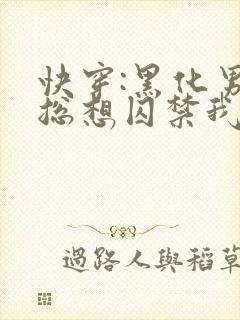 快穿:黑化男
总想囚禁我
過路人與稻草